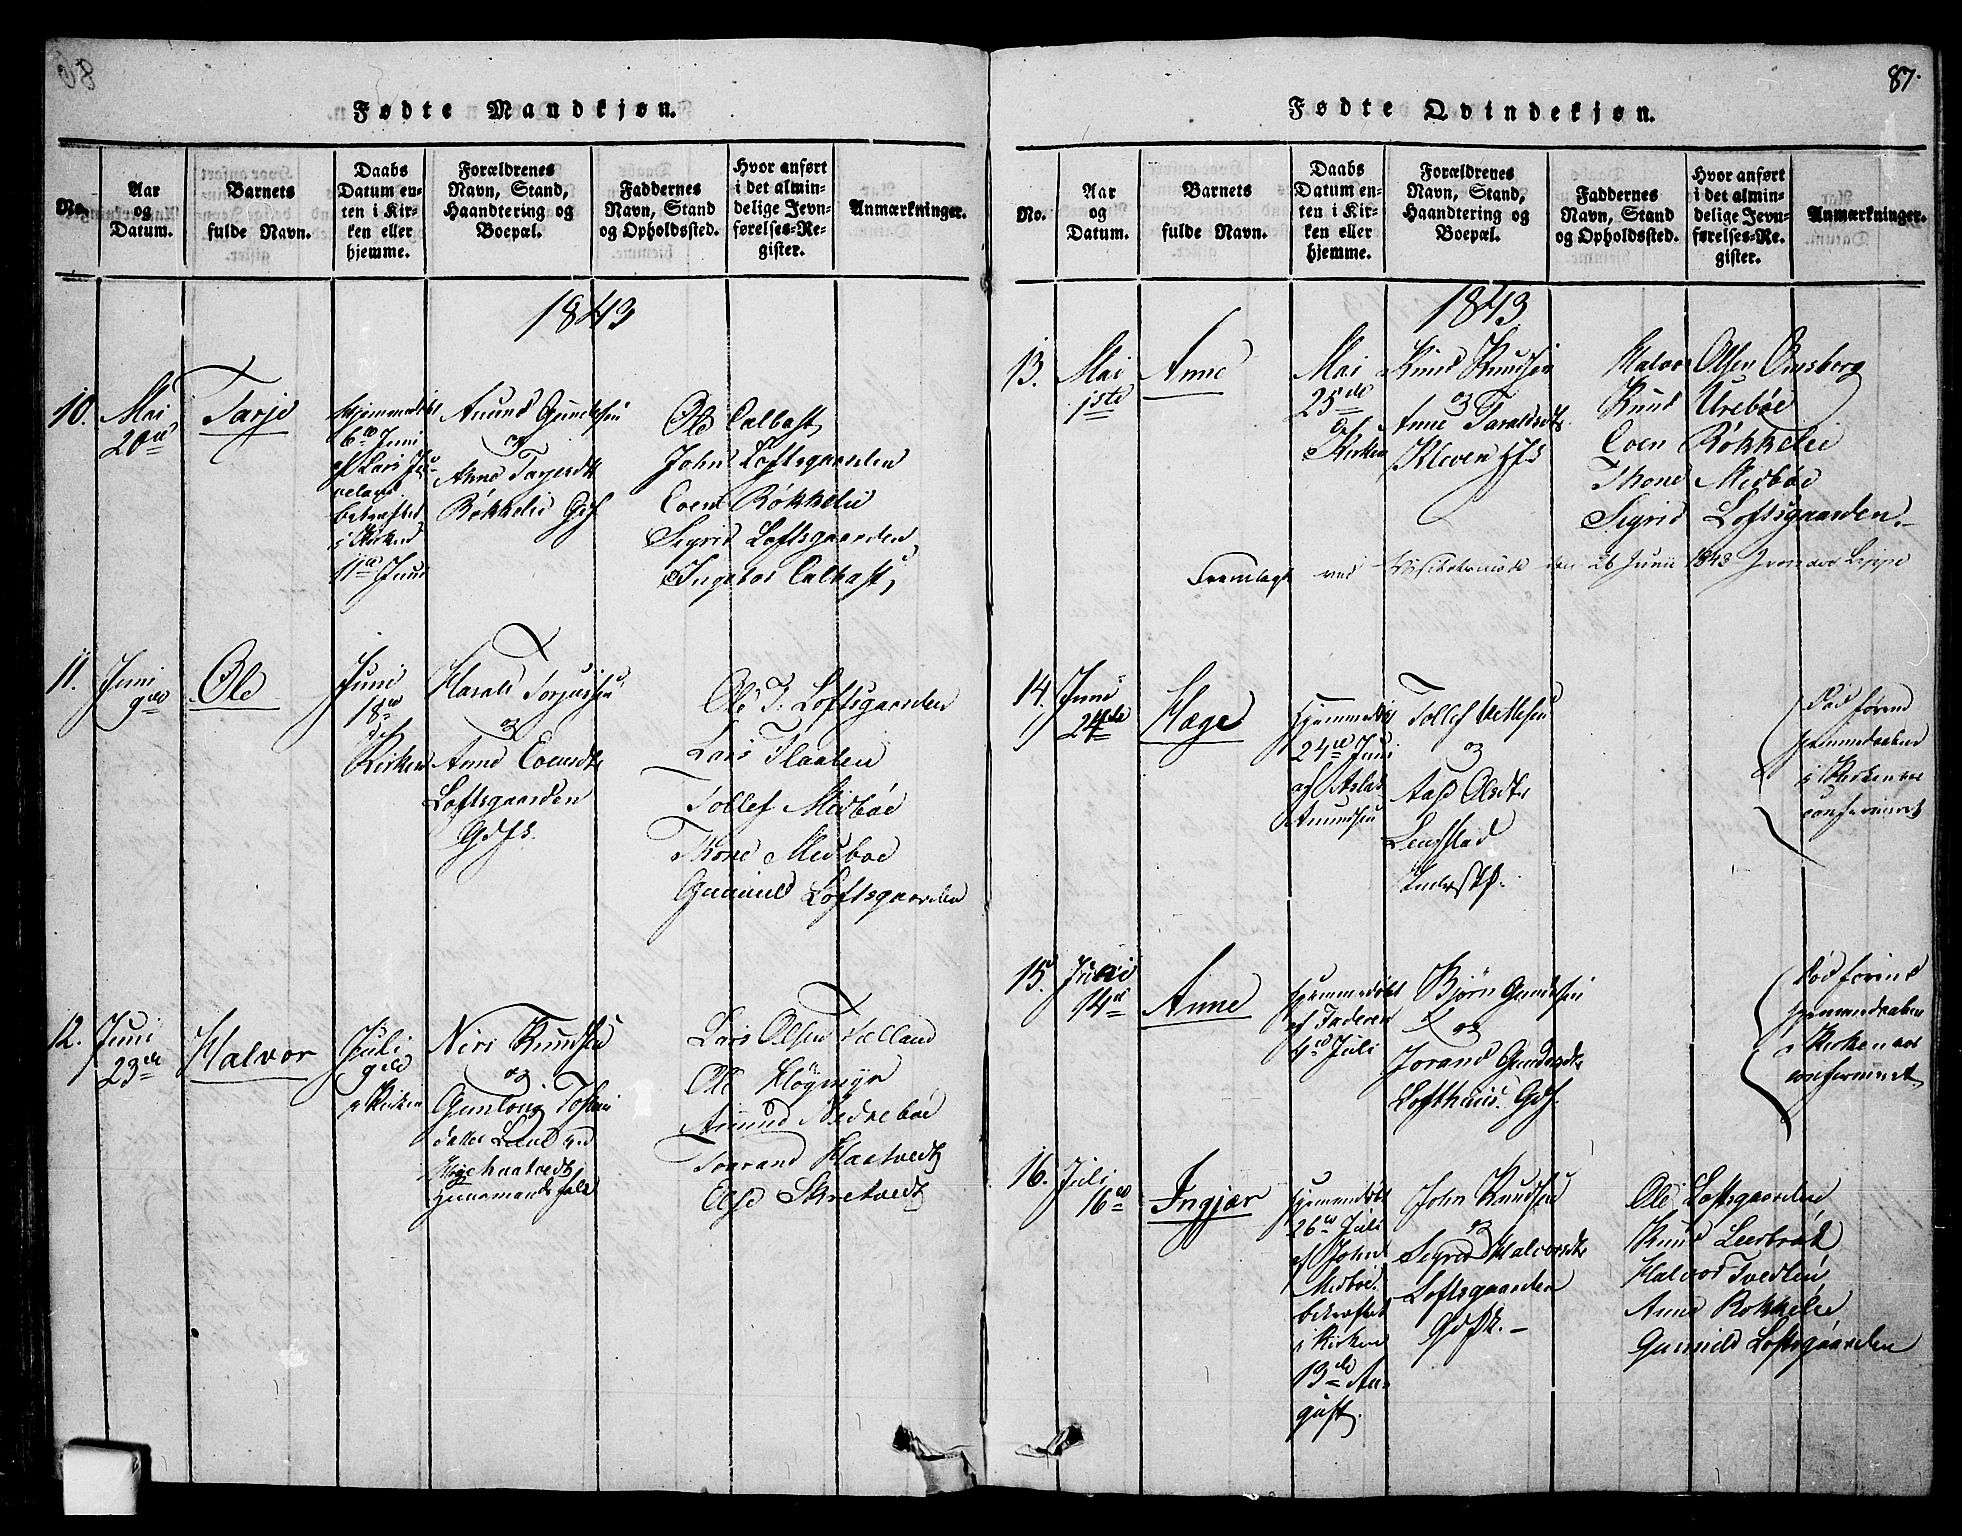 Fødte Mandkjøn.
No.
Aar
og
Datum.
Barnets
fulde Navn.
Daabs
Datum en-
ten i Kir-
ken eller
hjemme.
Forældrenes
Navn, Stand,
Haandtering og
Boepæl.
Faddernes
Navn, Stand
og Opholdssted.
Hvor anført
i det almin-
delige Jevn-
førelses-Re-
gister.
Anmærkninger.
1843
10.
Mai
20de
Tarje
hjemmedøbt
6te Juni
af Lars
bekræftet
i Kirken
11te Juni
Amund Gundersen
og
Anne Tarjesdtr
Røkkelie Gdf
Ole Calhaft
John Loftsgaarden
Coen Røkkelie
Sigrid Loftsgaarden
Ingebor Calhaft
11.
Juni
9de
Ole
Juni
18de
Kirken
Harald Torjussen
og
Anne Coensdtr
Loftsgaarden
Gdfk.
Ole T. Loftsgaarden
Lars Flaaten
Tollef Midbøe
Thone Midboe
Gunnild Loftsgaarden
12.
Juni
23de
Halvor
Juli
9de
i Kirken
Niri Knudsen
og
Gunlong
Lars Olsen Hælland
Ole Høgmyr
Amund Nedrebøe
Torrand Haatvedt
Else Skretvedt
87.
Fødte Qvindekjøn.
No.
Aar
og
Datum.
Barnets
fulde Navn.
Daabs
Datum en-
ten i Kir-
ken eller
hjemme.
Forældrenes
Navn, Stand,
Haandtering og
Boepæl.
Faddernes
Navn, Stand
og Opholdssted.
Hvor anført
i det almin-
delige Jevn-
førelses-Re-
gister.
Anmærkninger.
1843
13.
Mai
1ste
Anne
Mai
25de
Kirken
Knud Knudsen
og
Anne Taraldsdtr
Kleven
Halvor Olsen Omsborg
Knud Urebøe
Coen Røkkelie
Thone Midbøe
Sigrid Loftsgaarden.
Fremlagt ved 26 Junii 1843
14.
Juni
24de
Hæge
hjemmedøbt
24de Juni
af Aslak
Amundsen
Tollef Vetlesen
og
Aase Olsdtr
Død førend
hjemmedaaben
i Kirken var
confirmeret
15.
Juli
14de
Anne
hjemmedøbt
af Faderen
4de Juli
Bjørn Gundersen
og
Jorand Gundersdtr
Lofthuus. Gdf.
Død førend
hjemmedaaben
i Kirken var
confirmeret
16.
Juli
16de
Ingjær
hjemmedøbt
26de Juli
af John
Midboe.
bekræftet
i Kirken
13de Au-
gust.
John Knudsen
og
Sigrid Halvorsdtr
Loftsgaarden
Gdfk.
Ole Loftsgaarden
Knud Leerbræk
Halvor Tvedten
Anne Rokkelie
Gunnild Loftsgaarden